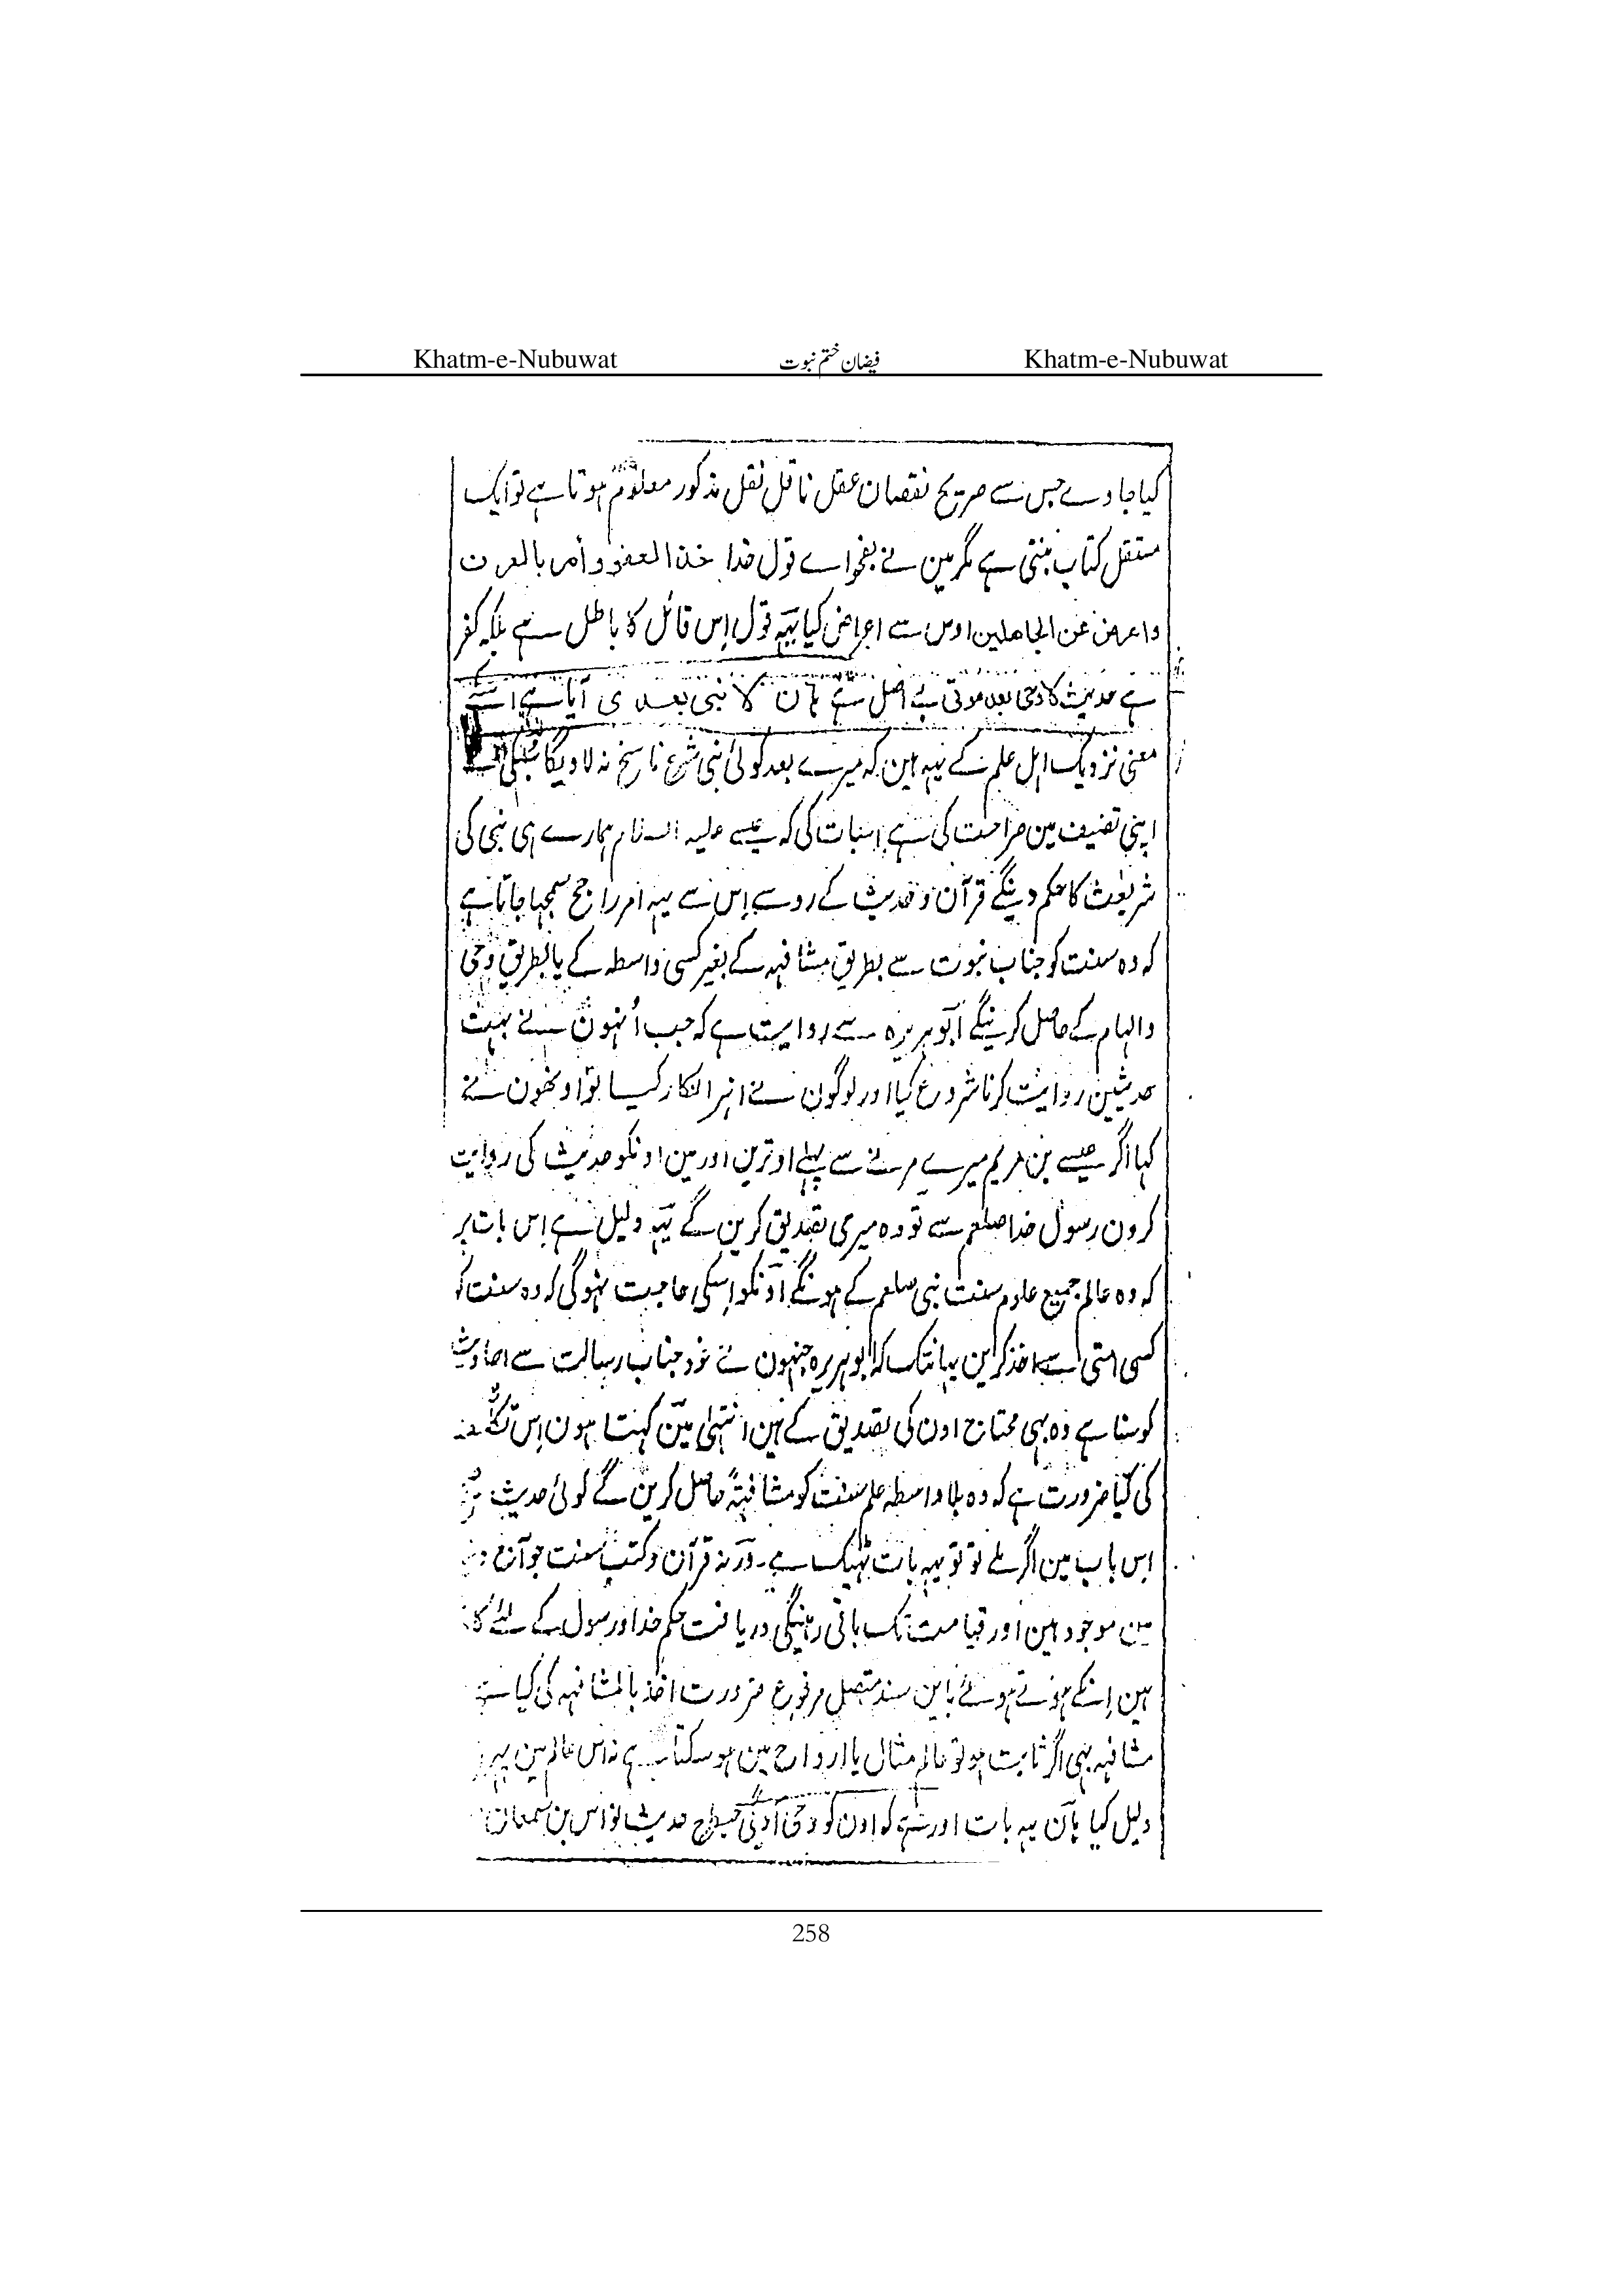 Khatm-e-Nubuwat فیضان ختم نبوت Khatm-e-Nubuwat
کیا جاوے جس سے صریح نقصان عقل ناقل نقل مذکور معلوم ہوتا ہے تو ایک
مستقل کتاب بنتی ہے مگر مین نے بفحواے قول خدا خذ العفو و أمر بالعرف
واعرض عن الجاهلین اوس سے اعراض کیا یہہ قول اِس قائل کا باطل ہے بلکہ کفر
ہے حدیث لا وحی بعد موتی بے اصل ہے ہان لا نبی بعدی آیا ہے اسکے
معنی نزدیک اہل علم کے یہہ ہین کہ میرے بعد کوئی نبی شرع ناسخ نہ لاویگا سبکی نے
اپنی تصنیف مین صراحت کی ہے اِسبات کی کہ عیسے علیہ السلام ہمارے ہی نبی کی
شریعت کا حکم دینگے قرآن و حدیث کے رو سے اِس سے یہہ امر راجح سمجہا جاتا ہے
کہ وہ سنت کو جناب نبوت سے بطریق مشافہہ کے بغیر کسی واسطہ کے یا بطریق وحی
والہام کے حاصل کرینگے ابو ہریرہ سے روایت ہے کہ جب اُنہون نے بہت
حدیثین روایت کرنا شروع کیا اور لوگون نے انپر انکار کیا تو اونھون نے
کہا اگر عیسے بن مریم میرے مرنے سے پہلے اوترین اور مین اونکو حدیث کی روایت
کرون رسول خدا صلعم سے تو وہ میری تصدیق کرین گے یہہ دلیل ہے اِس بات پر
کہ وہ عالم جمیع علوم سنت نبی صلعم کے ہونگے اونکو اِسکی حاجت نہوگی کہ وہ سنت کو
کسی امتی سے اخذ کرین یہانتک کہ ابو ہریرہ جنہون نے خود جناب رسالت سے احادیث
کو سنا ہے وہ بہی محتاج اون کی تصدیق کے ہین انتہیٰ مین کہتا ہون اِس تکلف
کی کیا ضرورت ہے کہ وہ بلا واسطہ علم سنت کو مشافہۃً حاصل کرین گے کوئی حدیث
اِس باب مین اگر ملے تو تو یہہ بات ٹہیک ہے ۔ ورنہ قرآن و کتب سنت جو آج
مین موجود ہین اور قیامت تک باقی رہینگی دریافت حکم خدا اور رسول کے لئے
ہین اِنکے ہوتے ہوئے باین سند متصل مرفوع ضرورت اخذ بالمشافہہ کی کیا ہے
مشافہہ بہی اگر ثابت ہو تو عالم مثال یا ارواح مین ہو سکتا ہے نہ اس عالم مین
دلیل کیا ہان یہہ بات اور ہے کہ اون کو وحی آوئی جسطرح حدیث نواس بن سمعان
258